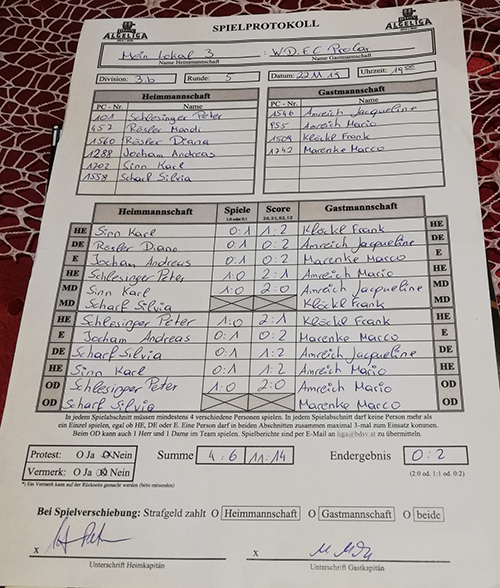 ALGELIGA SPIELPROTOKOLL ALGELIGA
Mein Lokal 3 : W.D.F.C Prolar
Name Heimmannschaft Name Gastmannschaft
Division: 3.b Runde: 5 Datum: 22.11.19 Uhrzeit: 19:00
Heimmannschaft Gastmannschaft
PC - Nr. Name PC - Nr. Name
101 Schlesinger Peter 1546 Amreich Jacqueline
457 Rösler Mandi 955 Amreich Mario
1560 Rösler Diana 1509 Klöckl Frank
1288 Jocham Andreas 1742 Marenke Marco
1702 Sinn Karl
1558 Scharf Silvia
Heimmannschaft Spiele Score Gastmannschaft
1:0 oder 0:1 2:0, 2:1, 0:2, 1:2
HE Sinn Karl 0:1 1:2 Klöckl Frank HE
DE Rösler Diano 0:1 0:2 Amreich Jacqueline DE
E Jocham Andreas 0:1 0:2 Marenke Marco E
HE Schlesinger Peter 1:0 2:1 Amreich Mario HE
MD Sinn Karl 1:0 2:0 Amreich Jacqueline MD
MD Scharf Silvia Klöckl Frank MD
HE Schlesinger Peter 1:0 2:1 Klöckl Frank HE
E Jocham Andreas 0:1 0:2 Marenke Marco E
DE Scharf Silvia 0:1 1:2 Amreich Jacqueline DE
HE Sinn Karl 0:1 1:2 Amreich Mario HE
OD Schlesinger Peter 1:0 2:0 Amreich Mario OD
OD Scharf Silvia Marenke Marco OD
In jedem Spielabschnitt müssen mindestens 4 verschiedene Personen spielen. In jedem Spielabschnitt darf keine Person mehr als
ein Einzel spielen, egal ob HE, DE oder E. Eine Person darf in beiden Abschnitten zusammen maximal 3-mal zum Einsatz kommen.
Beim OD kann auch 1 Herr und 1 Dame im Team spielen. Spielberichte sind per E-Mail an liga@bdsv.at zu übermitteln.
Protest: O Ja O Nein Summe 4:6 11:14 Endergebnis 0:2
Vermerk: O Ja O Nein (2:0 od. 1:1 od. 0:2)
*) Ein Vermerk kann auf der Rückseite gemacht werden (bitte ankreuzen)
Bei Spielverschiebung: Strafgeld zahlt O Heimmannschaft O Gastmannschaft O beide
x x
Unterschrift Heimkapitän Unterschrift Gastkapitän